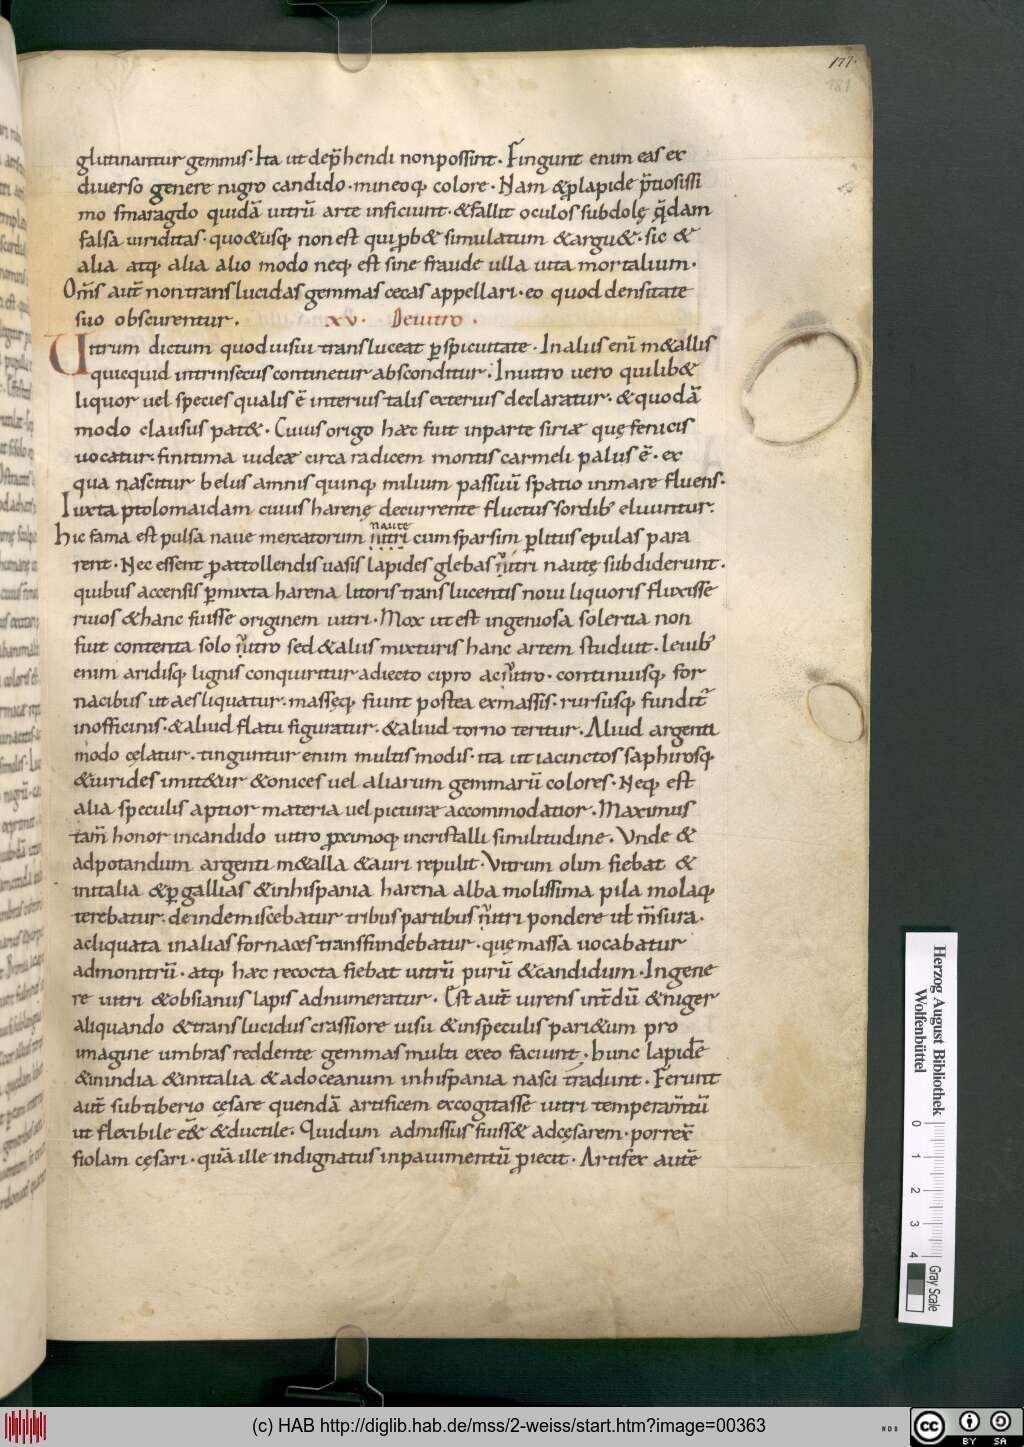 177.
181
glutinantur gemmis. Ita ut dep̄hendi non possint. Fingunt enim eas ex
diuerso genere nigro candido. mineoq; colore. Nam & ꝓ lapide p̄tiosissi
mo smaragdo quidā uitrū arte inficiunt. & fallit oculos subdolę q̄dam
falsa uiriditas. quo&usq; non est qui ꝓb& simulatum & argu&. sic &
alia atq; alia alio modo neq; est sine fraude ulla uita mortalium.
Om̄s aut̄ non translucidas gemmas cecas appellari. eo quod densitate
suo obscurentur. xv. De uitro.
Uitrum dictum quod uisui transluceat ꝑspicuitate. In aliis enī m&allis
quicquid intrinsecus continetur absconditur. In uitro uero quilib&
liquor uel species qualis ē interius talis exterius declaratur. & quodā
modo clausus pat&. Cuius origo hæc fuit in parte siriæ quę fenicis
uocatur. finitima iudeæ circa radicem montis carmeli palus ē. ex
qua nascitur belus amnis quinq; milium passuū spatio in mare fluens.
Iuxta ptolomaidam cuius harenę decurrente fluctus sordib; eluuntur.
naute
hic fama est pulsa naue mercatorum nitri cum sparsim ꝑ litus epulas para
rent. Nec essent ꝓ attollendis uasis lapides glebas nitri nautę subdiderunt.
quibus accensis ꝑmixta harena litoris translucentis noui liquoris fluxisse
riuos & hanc fuisse originem uitri. Mox ut est ingeniosa solertia non
fuit contenta solo nitro sed & aliis mixturis hanc artem studuit. Leuib;
enim aridisq; lignis conquiritur adiecto cipro ac nitro. continuisq; for
nacibus ut aes liquatur. massęq; fiunt postea ex massis. rursusq; fundit̄
in officinis. & aliud flatu figuratur. & aliud torno teritur. Aliud argenti
modo cęlatur. tinguntur enim multis modis. ita ut iacinctos saphirosq;
& uirides imit&ur & onices uel aliarum gemmarū colores. Neq; est
alia speculis aptior materia uel picturæ accommodatior. Maximus
tam̄ honor in candido uitro ꝓximoq; in cristalli similitudine. Unde &
ad potandum argenti m&alla & auri repulit. Vitrum olim fiebat &
in italia & ꝑ gallias & in hispania harena alba molissima pila molaq;
terebatur. deinde miscebatur tribus partibus nitri pondere uł m̄sura.
ac liquata in alias fornaces transfundebatur. quę massa uocabatur
admonitrū. atq; hæc recocta fiebat uitrū purū & candidum. In gene
re uitri & obsianus lapis adnumeratur. Est aut̄ uirens int̄dū & niger
aliquando & translucidus crassiore uisu & in speculis pari&um pro
imagine umbras reddente gemmas multi ex eo faciunt. hunc lapidē
& in india & in italia & ad oceanum in hispania nasci tradunt. Ferunt
aut̄ sub tiberio cęsare quendā artificem excogitasse uitri temperam̄tū
ut flexibile e& & ductile. Qui dum admissus fuiss& ad cęsarem. porrex̄
fiolam cęsari. quā ille indignatus in pauimentū ꝓiecit. Artifex autē
Herzog August Bibliothek
Wolfenbüttel
0 1 2 3 4
Gray Scale
(c) HAB http://diglib.hab.de/mss/2-weiss/start.htm?image=00363
cc BY SA